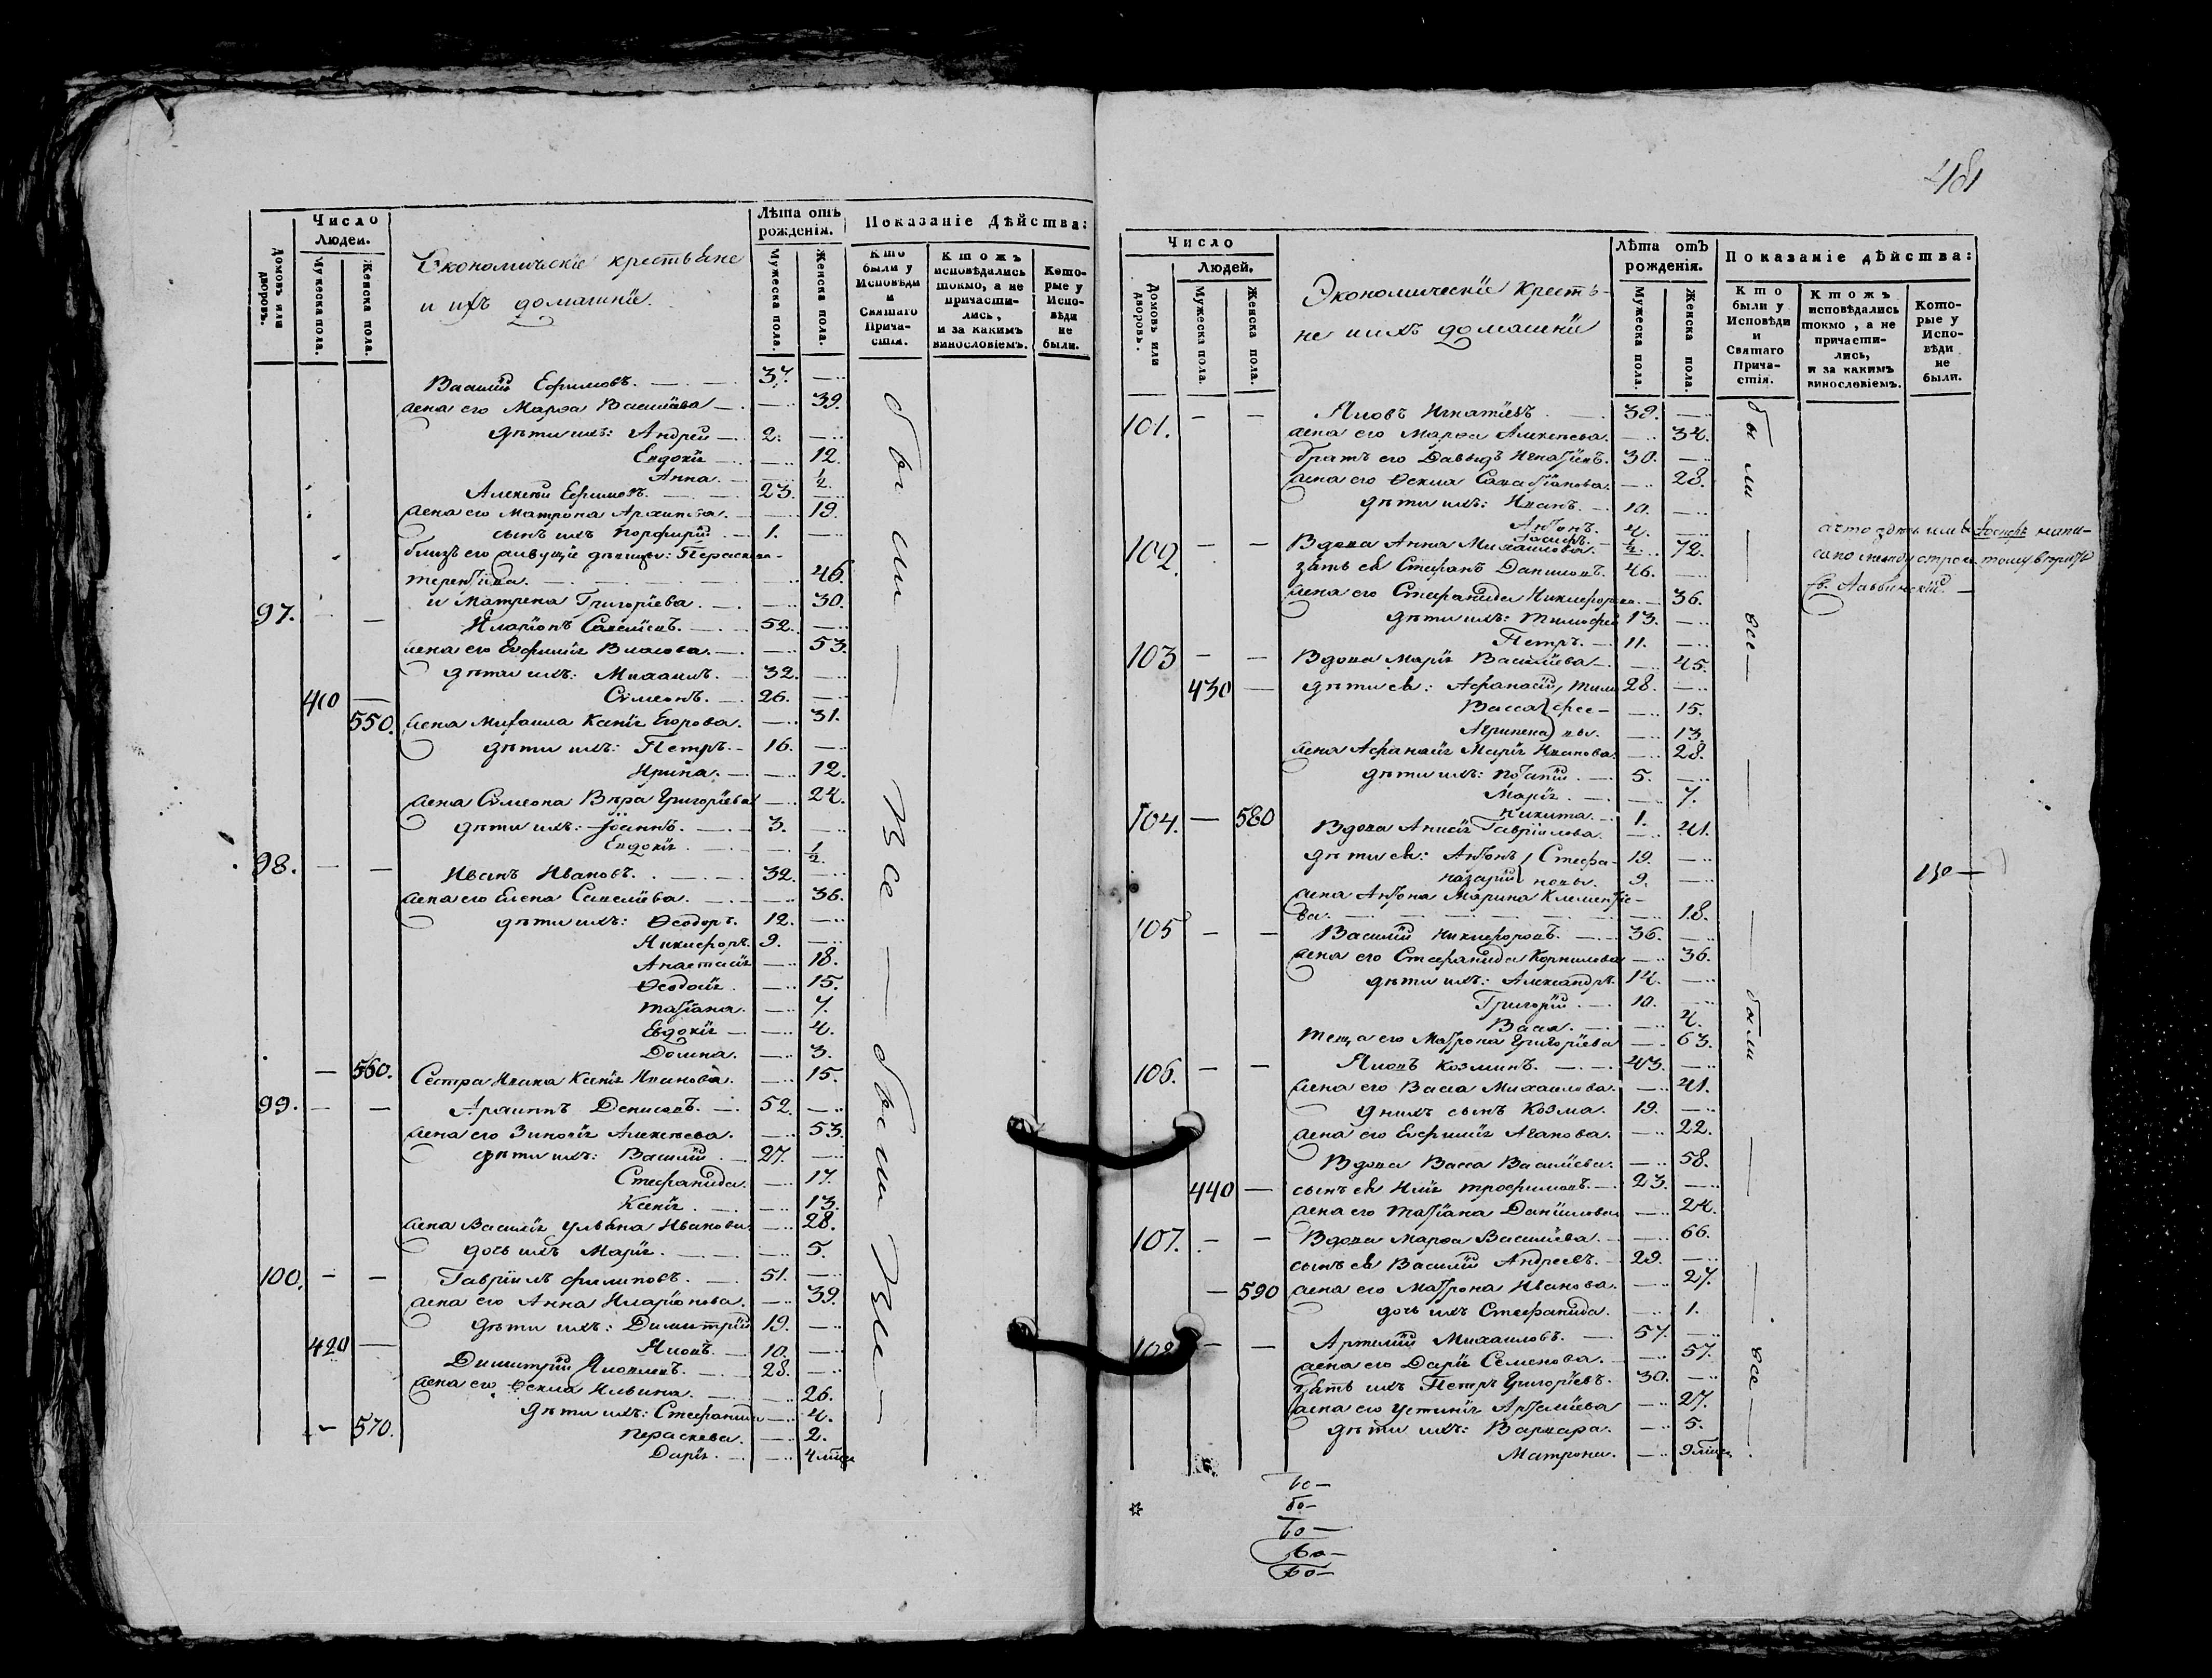 Число
Людей.
Домовъ или дворовъ.
Мужеска пола.
Женска пола.
Экономическіе крестьяне
и ихъ домашніе.
Лѣта отъ
рожденія.
Мужеска пола.
Женска пола.
Показаніе дѣйства:
Кто
были у
Исповѣди
и
Святаго
Прича-
стія.
Ктожъ
исповѣдались
токмо, а не
причасти-
лись,
и за какимъ
винословіемъ.
Кото-
рые у
Испо-
вѣди
не
были.
Василій Ефимовъ. 37.
жена его Марѳа Василіева 39.
дѣти ихъ: Андрей 2.
Евдокія 12.
Анна. ½.
Алексѣй Ефимовъ. 23.
жена его Матрона Архипова. 19.
сынъ ихъ Порфирій 1.
46.
и Матрена Григоріева. 30.
97. Иларіонъ Савеліевъ. 52.
жена его Евфимія Власова. 53.
дѣти ихъ: Михаилъ. 32.
410 Сѵмеонъ. 26.
550. жена Михаила Ксенія Егорова. 31.
дѣти ихъ: Петръ. 16.
Ирина. 12.
жена Сѵмеона Вѣра Григоріева 24.
дѣти ихъ: Іоаннъ. 3.
Евдокія ½.
98. Иванъ Ивановъ. 32.
жена его Елена Савеліева. 36.
дѣти ихъ: Ѳеодоръ. 12.
Никифоръ. 9.
Анастасія 18.
Ѳеодосія. 15.
Татіана. 7.
Евдокія 4.
Домна. 3.
560. Сестра Ивана Ксенія Иванова. 15.
99. Архиппъ Денисовъ. 52.
жена его Зиновія Алексѣева. 53.
дѣти ихъ: Василій 27.
Стефанида. 17.
Ксенія. 13.
жена Василія Ульяна Иванова 28.
дочь ихъ Марія. 5.
100. Гавріилъ Филиповъ. 51.
жена его Анна Иларіонова. 39.
дѣти ихъ: Димитрій 19.
420 Яковъ. 10.
Димитрій Яковлевъ. 28.
жена его Ѳекла Ильина. 26.
дѣти ихъ: Стефанида 4.
570. Параскева. 2.
Дарія. 4 мѣсяц
были — все — были все —
481
Число
Людей.
Домовъ или дворовъ.
Мужеска пола.
Женска пола.
Экономическіе кресть-
не и ихъ домашніе
Лѣта отъ
рожденія.
Мужеска пола.
Женска пола.
Показаніе дѣйства:
Кто
были у
Исповѣди
и
Святаго
Прича-
стія.
Ктожъ
исповѣдались
токмо, а не
причасти-
лись,
и за какимъ
винословіемъ.
Кото-
рые у
Испо-
вѣди
не
были.
101. Яковъ Игнатіевъ 38.
жена его Марѳа Алексѣева. 34.
братъ его Давыдъ Игнатіевъ. 30.
жена его Ѳекла 28.
дѣти ихъ: Иванъ. 10.
Антонъ. 4.
½.
102. Вдова Анна Михаилова. 72.
зять ея Стефанъ Даниловъ. 46.
жена его Стефанида Никифорова. 36.
дѣти ихъ: Тимофей 13.
Петръ. 11.
103 Вдова Марія Василіева 45.
430 дѣти ея: Афанасій, Тимо 28.
Васса фее- 15.
Агрипена вы. 13.
жена Афанасія Марія Иванова. 28.
дѣти ихъ: Потапій 5.
Марія. 7.
Никита. 1.
104. 580 Вдова Анисія Гавріилова. 41.
дѣти ея: Антонъ, Стефа- 19.
Назарій новы. 9.
жена Антона Марина Клементіе-
ва. 18.
105 Василій Никифоровъ. 36.
жена его Стефанида Корнилова 36.
дѣти ихъ: Александръ. 14.
Григорій. 10.
Васса. 4.
теща его Матрона Григоріева 63.
106. Яковъ Козминъ. 43.
жена его Васса Михаилова. 41.
у нихъ сынъ Козма. 19.
жена его Евфимія Агапова. 22.
Вдова Васса Василіева. 58.
440 сынъ ея Илія Трофимовъ. 23.
жена его Татіана Даниилова 24.
107. Вдова Марѳа Василіева. 66.
сынъ ея Василій Андреевъ. 29.
590 жена его Матрона Иванова. 27.
дочь ихъ Стефанида. 1.
108 Артемій Михаиловъ. 57.
жена его Дарія Семенова. 57.
зять ихъ Петръ Григоріевъ. 30.
жена его Устинія Артеміева 27.
дѣти ихъ: Варвара. 5.
Матрона. 9 мѣсяц
были — все — были — все —